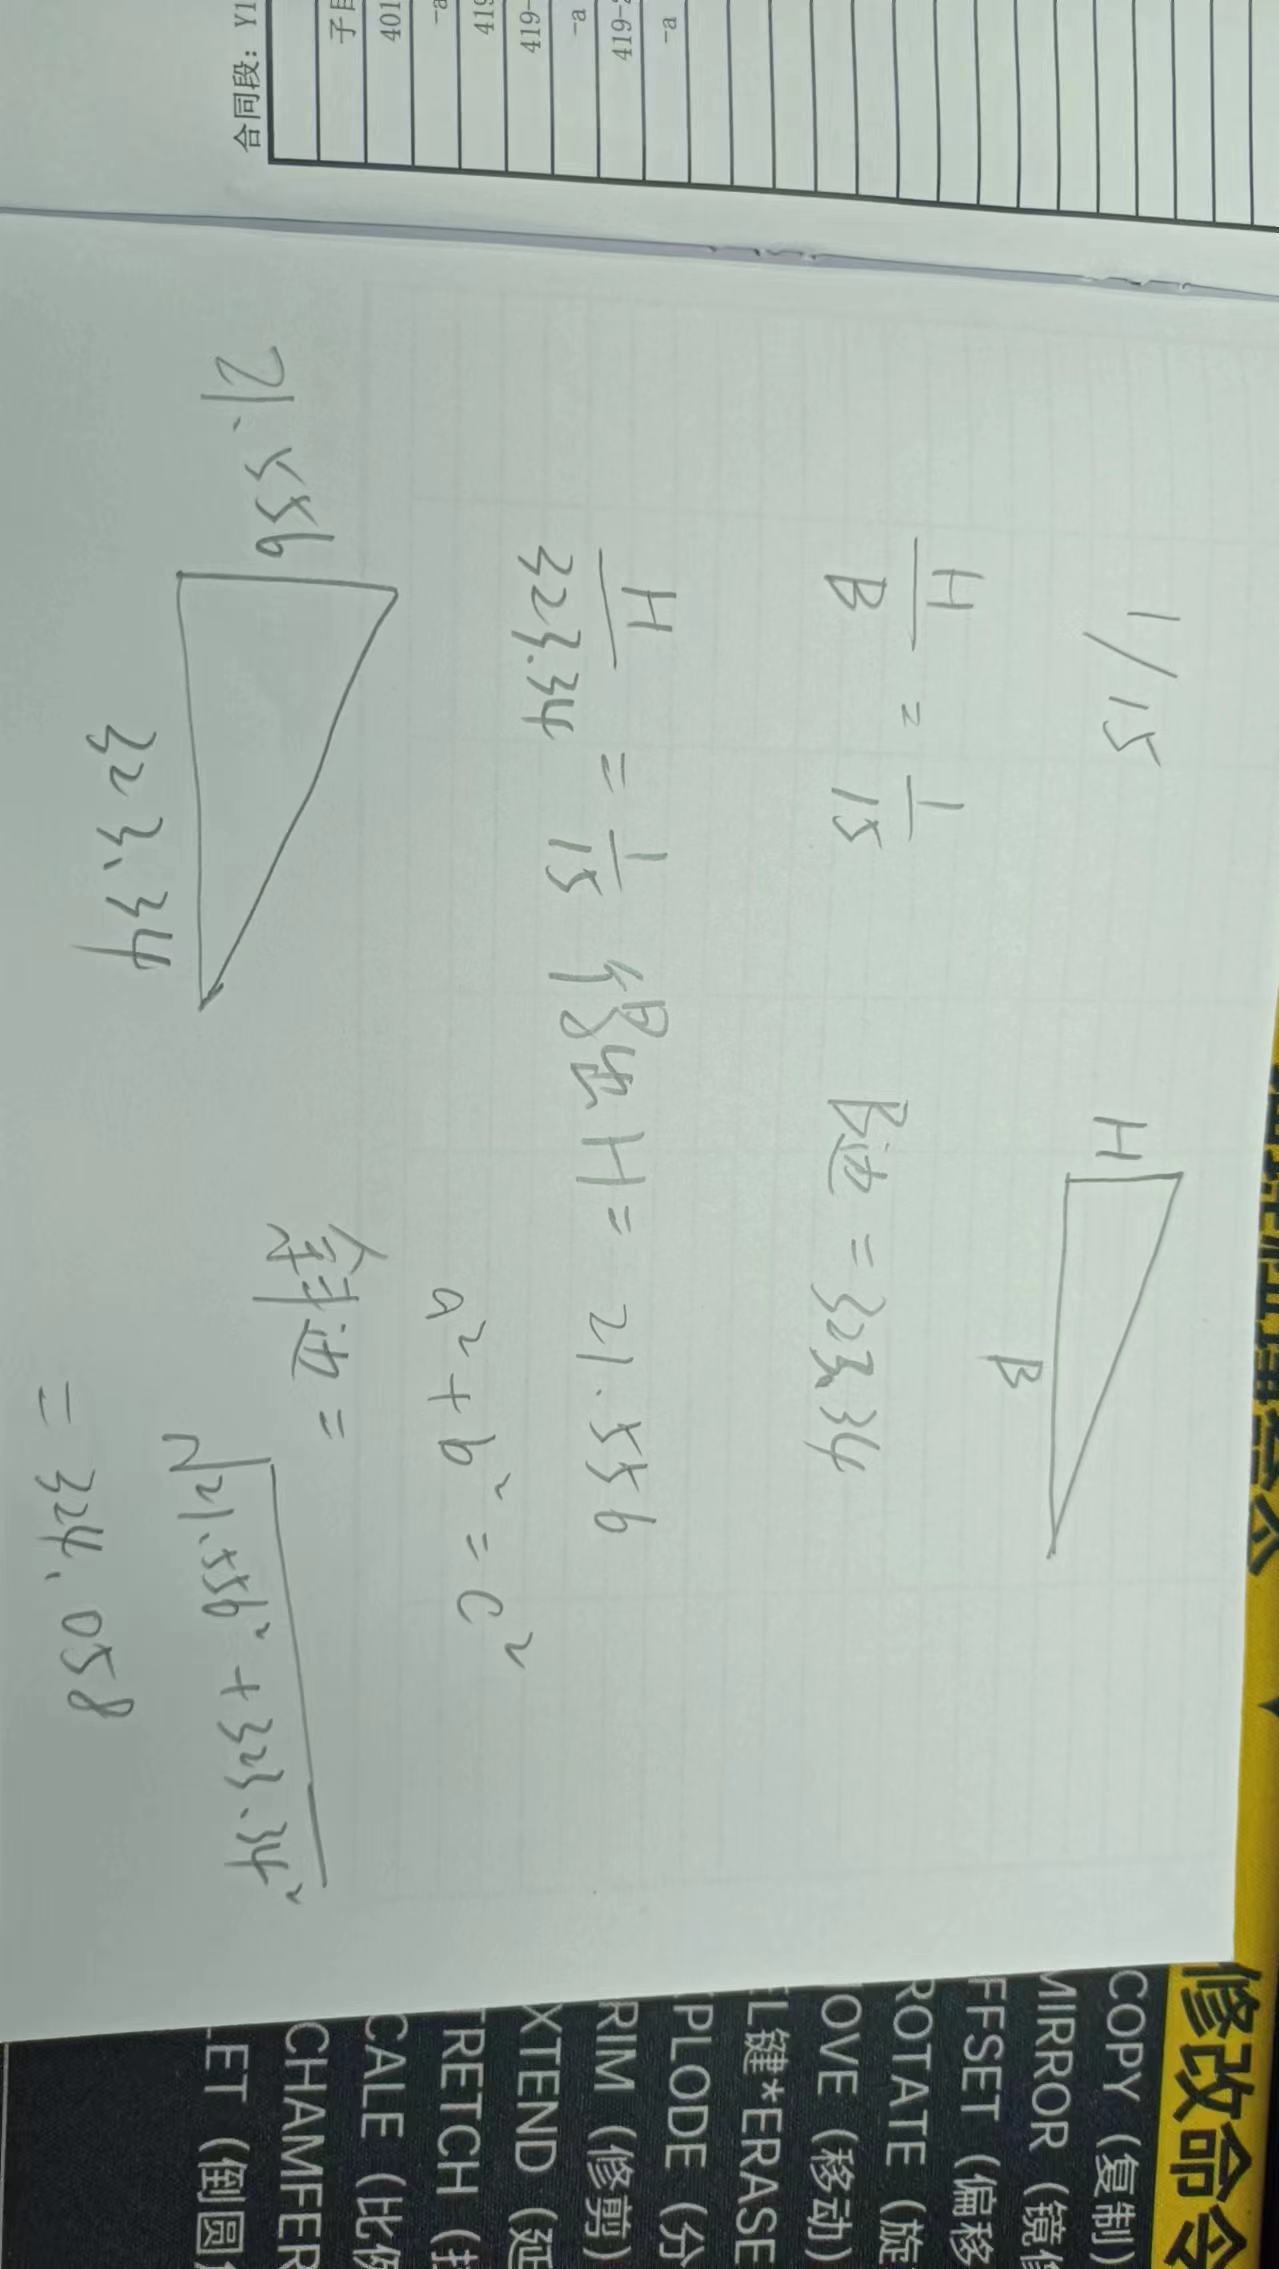 合同段：Y1
子目
401
-a
419
419-
-a
419-2
-a
1/15
H
B
H/B = 1/15
B边 = 323.34
H/323.34 = 1/15 得出 H = 21.556
a² + b² = c²
21.556
323.34
斜边 = √21.556² + 323.34²
= 324.058
修改命令
COPY（复制）
MIRROR（镜像
FFSET（偏移
ROTATE（旋
OVE（移动）
L键*ERASE
PLODE（分
RIM（修剪）
XTEND（延
TRETCH（拉
CALE（比例
CHAMFER
LET（倒圆